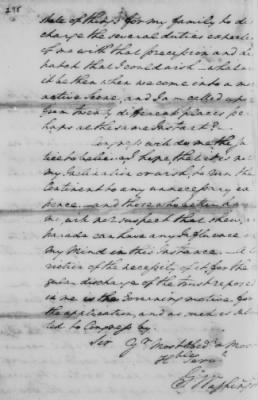 state of things for my family to dis-
charge the several duties expected
of me with that precision and di-
spatch that I could wish — what
will be then when we come into a more
active Scene, and I am called upon
from twenty different places per-
haps at the same Instant?
Congress will do me the jus-
tice to believe, I hope, that it is not
my inclination or wish to run the
Continent to any unnecessary ex-
pence — and those who better know
me will not suspect that shew, &
parade can have any Influence on
my Mind in this Instance — A con-
viction of the necessity of it, for the
regular discharge of the trust reposed
in me is the Governing motive for
the application, and as such is submit-
ted to Congress by
Sir Yr Most Obedt & Most
Hble Servt
Go Washington